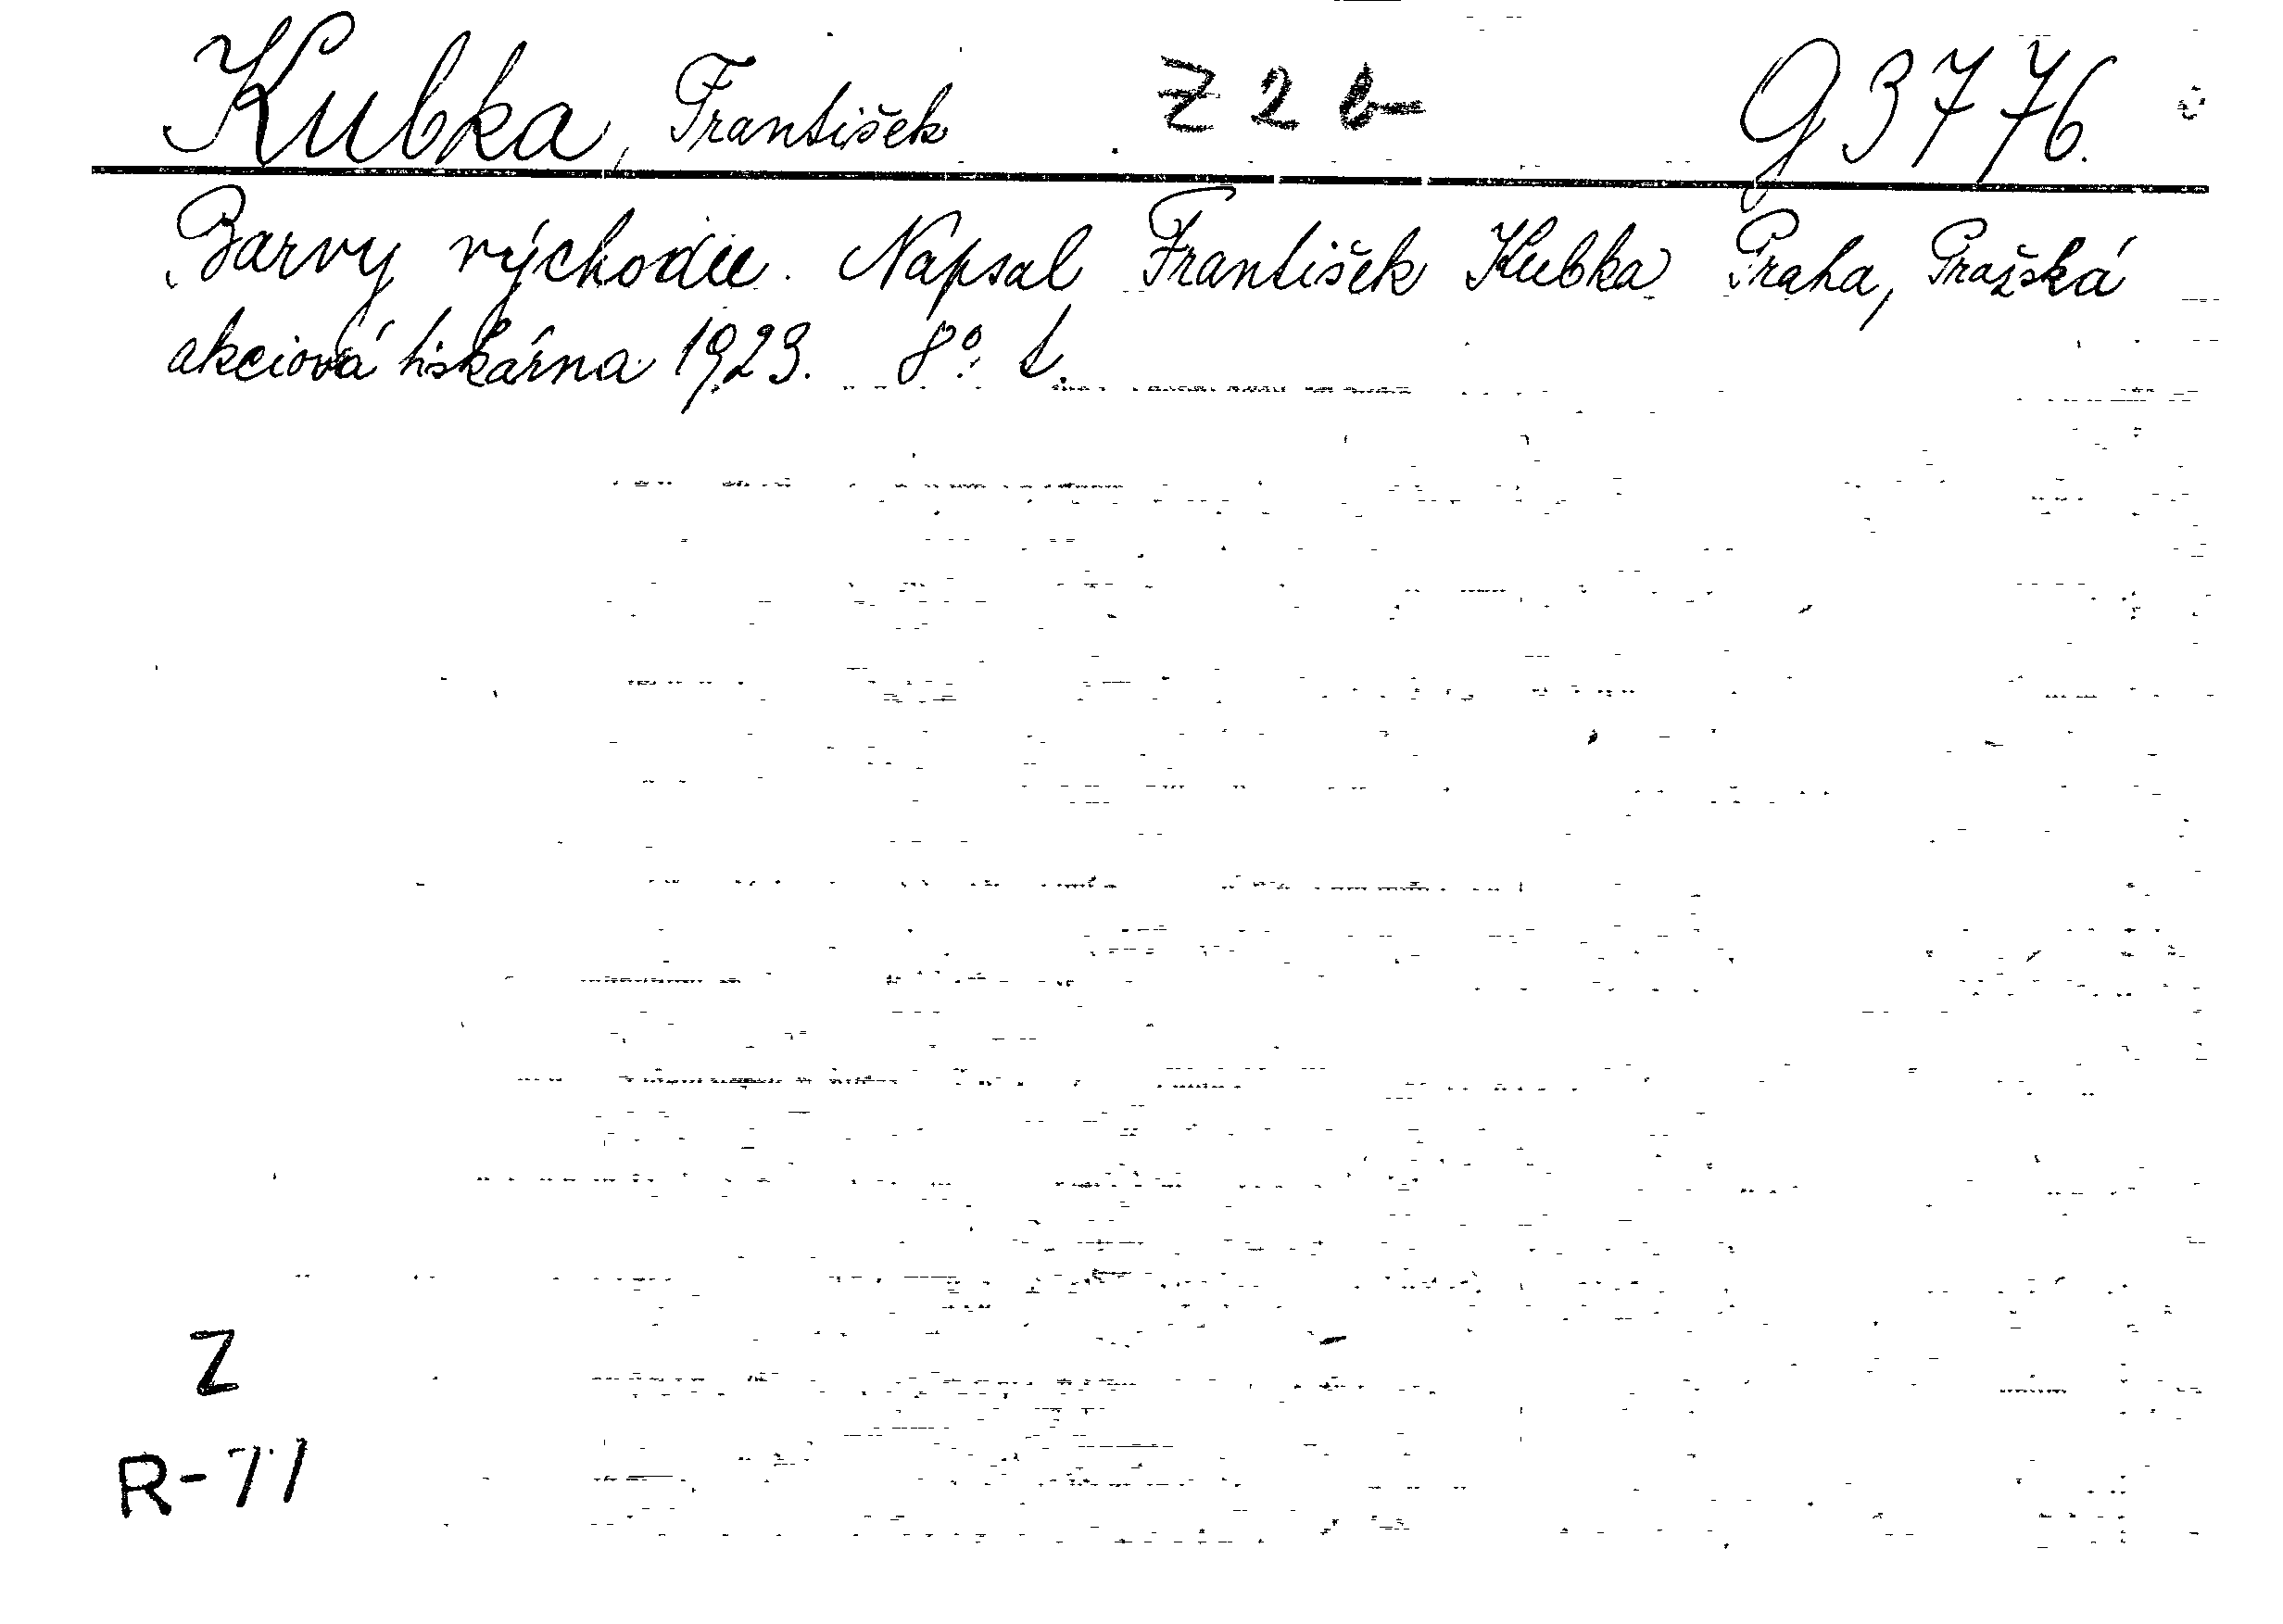 Kubka, František Z 2 b- G 3776.
Barvy východu. Napsal František Kubka Praha, Pražská
akciová tiskárna 1923. 8°. t.
Z
R-71